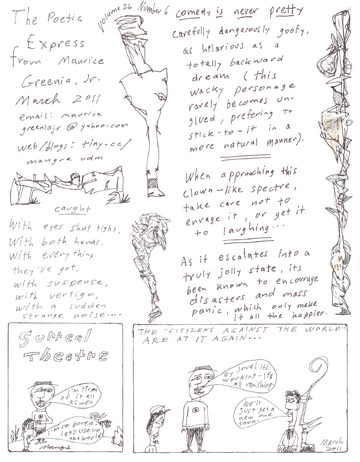 The Poetic
Express
from Maurice
Greenia, Jr.
March 2011
email: maurice
greenia jr @ yahoo.com
web/blogs: tiny.cc/
maugre udm
caught
With eyes shut tight,
With both hands.
With everything
they've got.
With suspense,
with vertigo,
with a sudden
strange noise...
Volume 26 Number 6
comedy is never pretty
Carefully dangerously goofy,
as hilarious as a
totally backward
dream (this
wacky personage
rarely becomes un-
glued, prefering to
stick-to-it in a
more natural manner).
When approaching this
clown-like spectre,
take care not to
enrage it, or get it
to laughing...
As it escalates into a
truly jolly state, its
been known to encourage
disasters and mass
panic, which only make
it all the happier.
Surreal
Theatre
I'm tired
of it all
as well
I'm so bored
let's use up
the world
THE "CITIZENS AGAINST THE WORLD"
ARE AT IT AGAIN...
by jove! its
working - it's
all vanishing
We'll
just get a
new one
soon!
March
2011